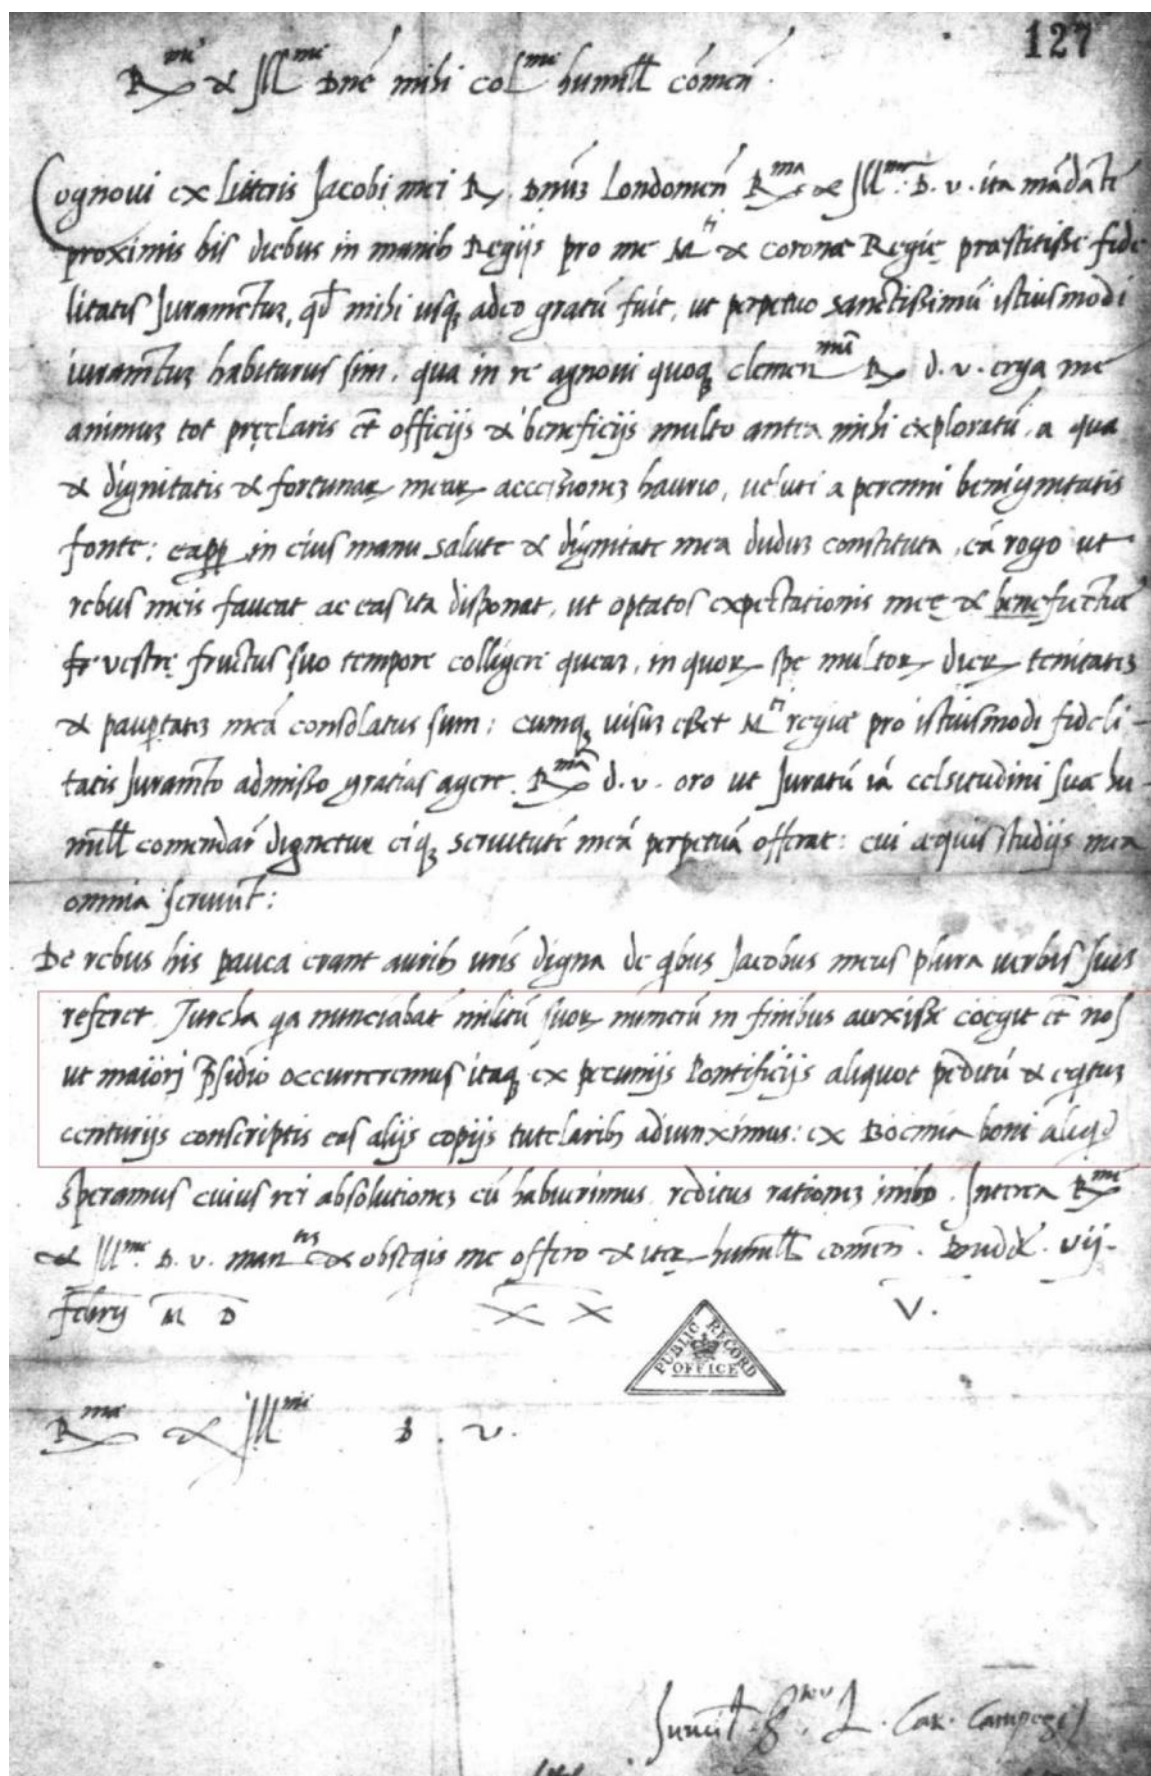 127
R^me & Ill^me Dne mihi col^me humill comen.
Cognovi ex litteris Jacobi mei R. Dnuz Londonien R^ma & Ill^ma D. v. ita mandate
proximis his diebus in manib Regijs pro me M^ti & coronæ Regię præstitisse fide
litatis Juramentuz, qd mihi usq adeo gratū fuit, ut perpetuo sanctissimū istiusmodi
iuramtuz habiturus sim. qua in re agnovi quoq clemen^mū R d. v. erga me
animuz tot pręclaris et officijs & beneficijs multo antea mihi exploratū, a qua
& dignitatis & fortunar mear accessionez haurio, veluti a perenni benignitatis
fonte: in eius manu salute & dignitate mea duduz constituta, eā rogo ut
rebus meis faveat ac eas ita disponat, ut optatos expectationis meę &
vestrę fructus suo tempore colligere queaz, in quor spe multor dier
& paupertatez meā consolatus sum: cumq visuz esset M^ti regiæ pro istiusmodi fideli-
tatis Juramto admisso gratias agere. R^mā d. v. oro ut Juratū iā celsitudini suæ hu-
mill comendar dignetur eiq servitutē meā perpetuā offerat: cui æquis studijs mea
omnia serviunt:
De rebus his pauca erant aurib vris digna de qbus Jacobus meus plura verbis suis
referet. Turcha qa nunciabat militū suor numerū in finibus auxisse coegit et nos
ut maiori psidio occurreremus itaq ex pecunijs Pontificijs aliquot peditū & eqituz
centurijs conscriptis eas alijs copijs tutelarib adiunximus: ex Boemia boni aliqd
speramus cuius rei absolutionez cū habuerimus reditus rationez inibo. Interea R^me
& Ill^me D. v. man^tis & obseqis me offero & iter humill comen. Budæ. vij.
februarij M D X X V.
R^mæ & Ill^me D. v.
L. Car. Campegi
PUBLIC RECORD OFFICE